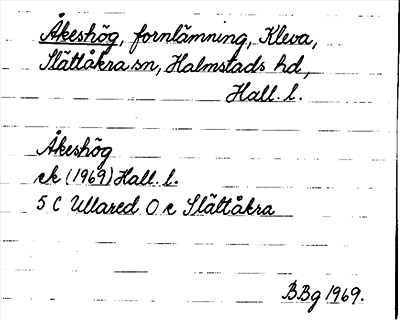 Åkeshög, fornlämning, Kleva,
Slättåkra sn, Halmstads hd,
Hall. l.
Åkeshög
ek (1969) Hall. l.
5 C Ullared O e Slättåkra
B.Bg 1969.